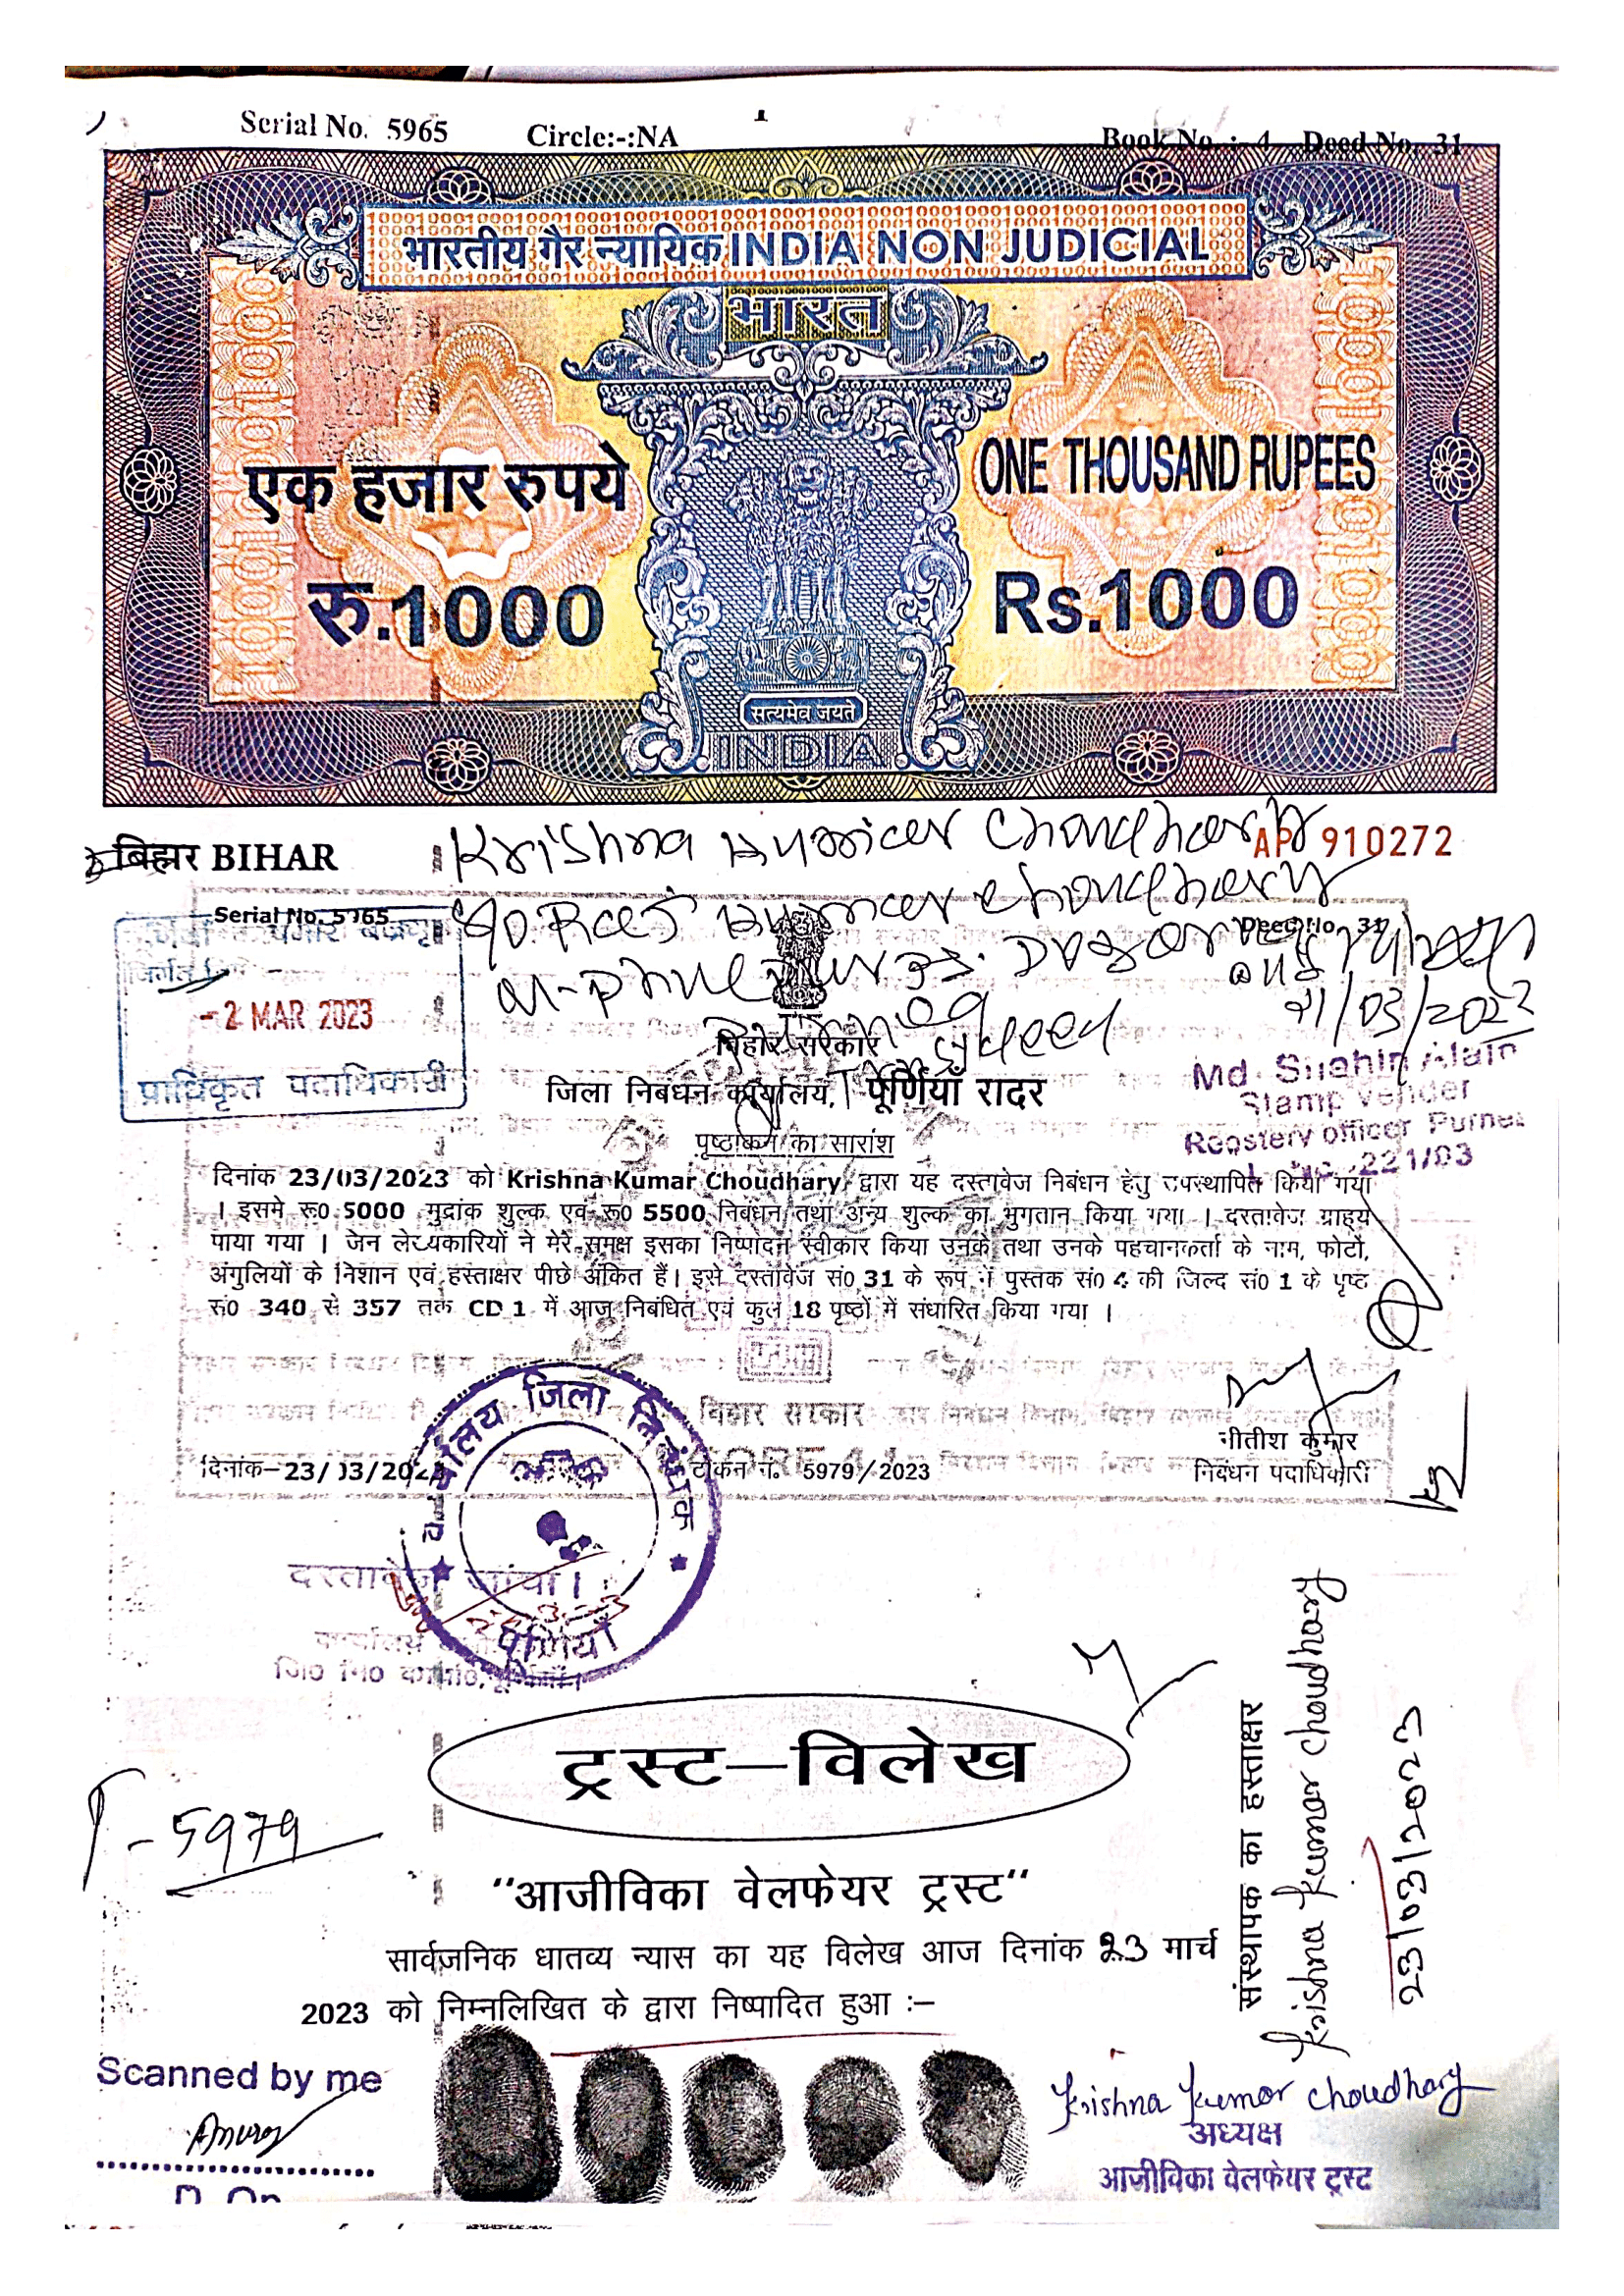 Serial No. 5965 Circle:-:NA 1 Book No. :- 4 Deed No. 31
भारतीय गैर न्यायिक INDIA NON JUDICIAL
भारत
एक हजार रुपये ONE THOUSAND RUPEES
रु.1000 Rs.1000
सत्यमेव जयते
INDIA
बिहार BIHAR Krishna Kumar Choudhary AP 910272
Serial No. 5965 Deed No. 31
S/o. Choudhary
-2 MAR 2023
प्राधिकृत पदाधिकारी
बिहार सरकार
जिला निबंधन कार्यालय, पूर्णियाँ रादर
Md. Shahin Alam
Stamp Vender
221/03
पृष्ठांकन का सारांश
दिनांक 23/03/2023 को Krishna Kumar Choudhary द्वारा यह दस्तावेज निबंधन हेतु उपस्थापित किया गया
। इसमे रू0 5000 मुद्रांक शुल्क एवं रू0 5500 निबंधन तथा अन्य शुल्क का भुगतान किया गया । दस्तावेज ग्राह्य
पाया गया । जिन लेख्यकारियों ने मेरे समक्ष इसका निष्पादन स्वीकार किया उनके तथा उनके पहचानकर्ता के नाम, फोटो,
अंगुलियों के निशान एवं हस्ताक्षर पीछे अंकित हैं। इसे दस्तावेज सं0 31 के रूप में पुस्तक सं0 4 की जिल्द सं0 1 के पृष्ठ
सं0 340 से 357 तक CD 1 में आज निबंधित एवं कुल 18 पृष्ठों में संधारित किया गया ।
बिहार सरकार
नीतीश कुमार
दिनांक-23/03/2023 टोकन नं. 5979/2023 निबंधन पदाधिकारी
कार्यालय जिला निबंधक
पूर्णियाँ
ट्रस्ट-विलेख
T-5979
"आजीविका वेलफेयर ट्रस्ट"
सार्वजनिक धातव्य न्यास का यह विलेख आज दिनांक 23 मार्च
2023 को निम्नलिखित के द्वारा निष्पादित हुआ :-
संस्थापक का हस्ताक्षर
Krishna Kumar Choudhary
23/03/2023
Scanned by me
Krishna Kumar Choudhary
अध्यक्ष
आजीविका वेलफेयर ट्रस्ट